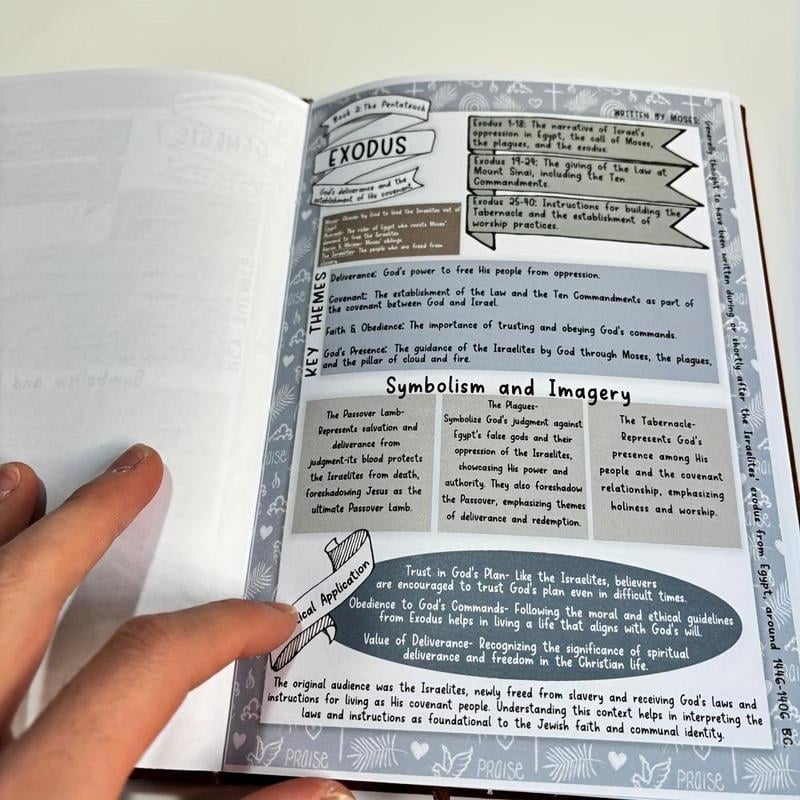 Book 2: The Pentateuch
EXODUS
God's deliverance and the
establishment of His covenant
WRITTEN BY MOSES:
Generally thought to have been written during or shortly after the Israelites' exodus from Egypt, around 1446-1406 BC.
Exodus 1-18: The narrative of Israel's
oppression in Egypt, the call of Moses,
the plagues, and the exodus.
Exodus 19-24: The giving of the Law at
Mount Sinai, including the Ten
Commandments.
Exodus 25-40: Instructions for building the
Tabernacle and the establishment of
worship practices.
Moses: Chosen by God to lead the Israelites out of
Egypt.
Pharaoh: The ruler of Egypt who resists Moses'
demand to free the Israelites.
Aaron & Miriam: Moses' siblings.
The Israelites: The people who are freed from
slavery.
KEY THEMES
Deliverance: God's power to free His people from oppression.
Covenant: The establishment of the Law and the Ten Commandments as part of
the covenant between God and Israel.
Faith & Obedience: The importance of trusting and obeying God's commands.
God's Presence: The guidance of the Israelites by God through Moses, the plagues,
and the pillar of cloud and fire.
Symbolism and Imagery
The Passover Lamb-
Represents salvation and
deliverance from
judgment-its blood protects
the Israelites from death,
foreshadowing Jesus as the
ultimate Passover Lamb.
The Plagues-
Symbolize God's judgment against
Egypt's false gods and their
oppression of the Israelites,
showcasing His power and
authority. They also foreshadow
the Passover, emphasizing themes
of deliverance and redemption.
The Tabernacle-
Represents God's
presence among His
people and the covenant
relationship, emphasizing
holiness and worship.
Application
Trust in God's Plan- Like the Israelites, believers
are encouraged to trust God's plan even in difficult times.
Obedience to God's Commands- Following the moral and ethical guidelines
from Exodus helps in living a life that aligns with God's will.
Value of Deliverance- Recognizing the significance of spiritual
deliverance and freedom in the Christian life.
The original audience was the Israelites, newly freed from slavery and receiving God's laws and
instructions for living as His covenant people. Understanding this context helps in interpreting the
laws and instructions as foundational to the Jewish faith and communal identity.
PRAISE
PRAISE
PRAISE